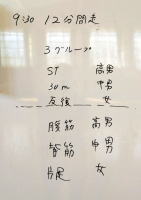 9:30 12分間走
3グループ
ST 高男
30m 中男
反復 女
腹筋 高男
背筋 中男
片足 女